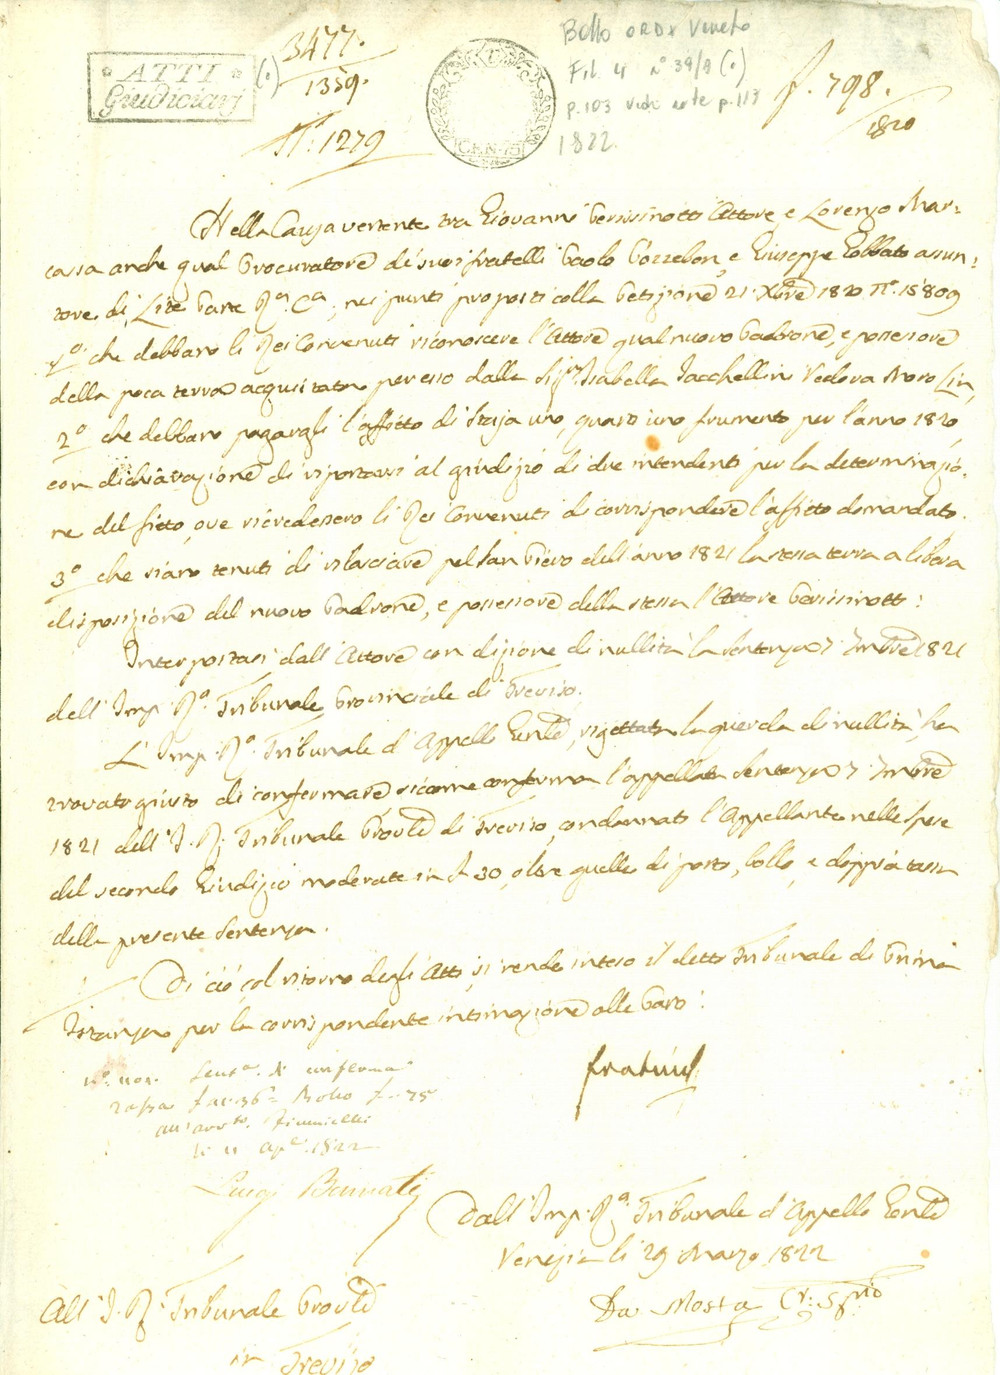 ATTI
Giudiciarj
3477.
1359.
N.° 1279
CEN. 75
Bollo ORD Veneto
Fil. 4 n° 39/9 (.)
p. 103 vedi p. 113
1822
f. 798.
1820
Nella Causa vertente tra Giovanni Perissinotti Attore e Lorenzo Mar=
cassa anche qual Procuratore de' suoi fratelli Paolo Pozzebon, e Giuseppe Gobbato assun=
tore di Lite Parte R.a C.a; nei punti proposti colla Petizione 21 Xbre 1820 N.° 15809
1.° che debbano li Rei Convenuti riconoscere l'Attore qual nuovo Padrone, e possessore
della poca terra acquistata per esso dalla Sig.ra Isabella Jacchellin Vedova Moro Lin,
2.° che debbano pagargli l'affitto di Staja uno, quarti uno frumento per l'anno 1820,
con dichiarazione di riportarsi al giudizio di due intendenti per la determinazio=
ne del fitto, ove ricredessero li Rei Convenuti di corrispondere l'affitto domandato.
3.° che siano tenuti di rilasciare pel San Piero dell'anno 1821 la stessa terra a libera
disposizione del nuovo Padrone, e possessore della stessa l'Attore Perissinotti:
Interpostasi dall'Attore con dizione di nullità la Sentenza 7 1821
dell'Imp. R.° Tribunale Provinciale di Treviso.
L'Imp. R.° Tribunale d'Appello Gen.le, rigettata la querela di nullità, ha
trovato giusto di confermare siccome conferma l'appellata Sentenza 7
1821 dell'I. R. Tribunale Prov.le di Treviso, condannato l'Appellante nelle spese
del secondo Giudizio moderate in 30, oltre quelle di porto, bollo, e doppia tassa
della presente Sentenza.
Di ciò, col ritorno degli Atti, si rende inteso il detto Tribunale di Prima
Istanza per la corrispondente intimazione alle Parti:
Sent.a di conferma
Tassa Bollo 75
1822
Luigi
Dall'Imp. R.° Tribunale d'Appello Gen.le
Venezia li 29 Marzo 1822
Da Mosta
All'I. R. Tribunale Prov.le
in Treviso